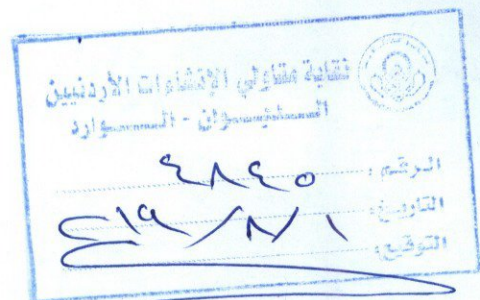 نقابة مقاولي الإنشاءات الأردنيين
الديوان - الوارد
الرقم: ٤٨٤٥
التاريخ: ١/٨/٢٠١٩
التوقيع: